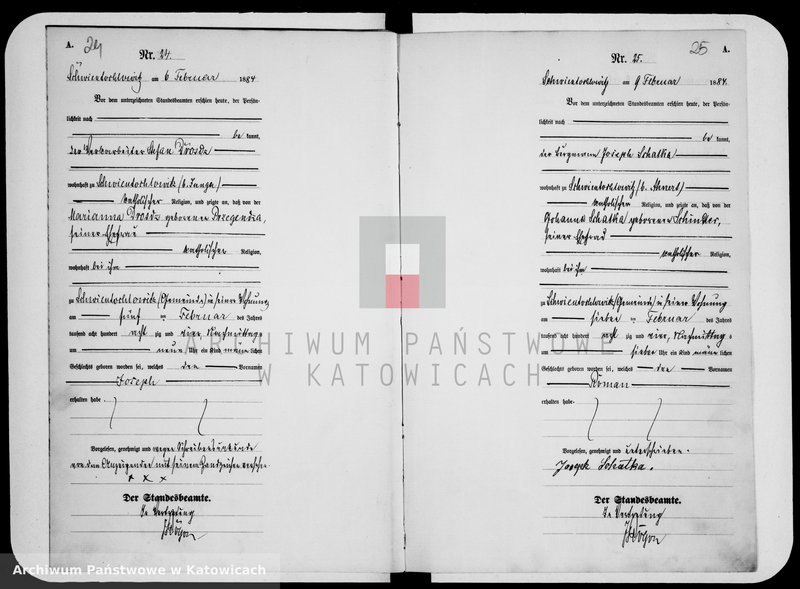 A.
24
Nr. 24.
Schwientochlowitz am 6 Februar 1884
Vor dem unterzeichneten Standesbeamten erschien heute, der Persön-
lichkeit nach
be kannt,
der
wohnhaft zu Schwientochlowitz
katholischer Religion, und zeigte an, daß von der
Marianna Drosdz geborenen
seiner Ehefrau
katholischer Religion,
wohnhaft bei ihm
zu Schwientochlowitz (Gemeinde) in seiner Wohnung
am fünf ten Februar des Jahres
tausend acht hundert acht zig und vier Nachmittags
um neun Uhr ein Kind männ lichen
Geschlechts geboren worden sei, welches den Vornamen
Joseph
erhalten habe
Vorgelesen, genehmigt und wegen
von dem Anzeigenden mit seinem Handzeichen versehen
x x x
Der Standesbeamte.
In Vertretung
25
A.
Nr. 25.
Schwientochlowitz am 9 Februar 1884.
Vor dem unterzeichneten Standesbeamten erschien heute, der Persön-
lichkeit nach
be kannt,
der Bergmann Joseph Schatka
wohnhaft zu Schwientochlowitz
katholischer Religion, und zeigte an, daß von der
Johanna Schatka geborenen
seiner Ehefrau
katholischer Religion,
wohnhaft bei ihm
zu Schwientochlowitz (Gemeinde) in seiner Wohnung
am sieben ten Februar des Jahres
tausend acht hundert acht zig und vier, Nachmittags
um sieben Uhr ein Kind männ lichen
Geschlechts geboren worden sei, welches den Vornamen
Roman
erhalten habe
Vorgelesen, genehmigt und unterschrieben.
Joseph Schatka.
Der Standesbeamte.
In Vertretung
ARCHIWUM PAŃSTWOWE
W KATOWICACH
Archiwum Państwowe w Katowicach